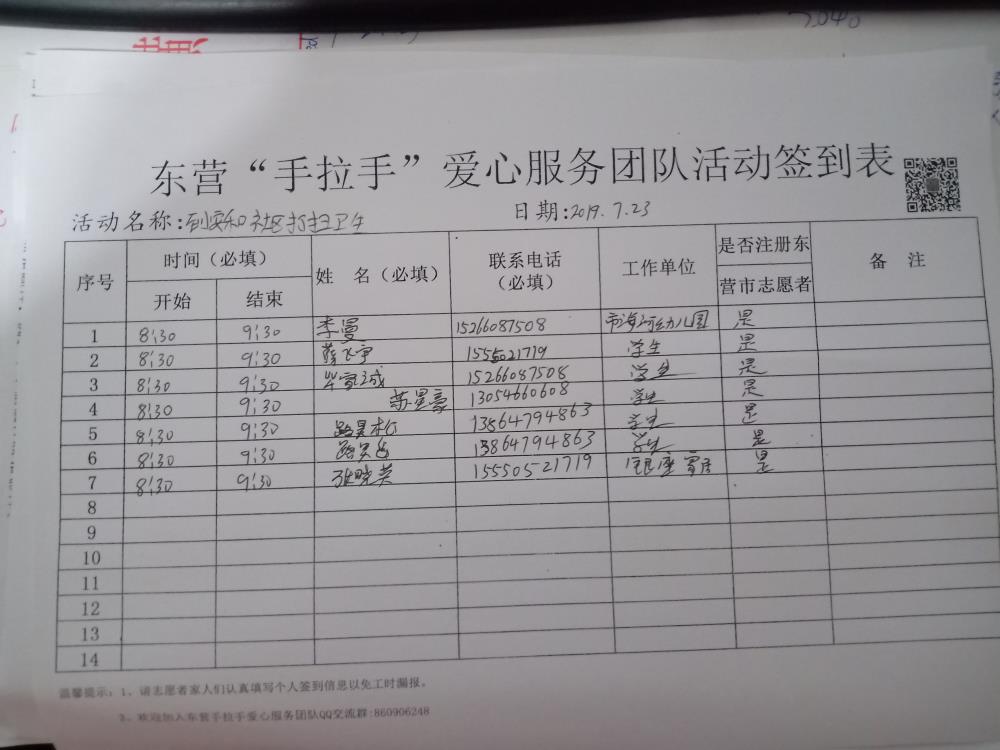 东营“手拉手”爱心服务团队活动签到表
活动名称:到安和社区打扫卫生 日期:2019.7.23
序号 时间（必填） 姓 名（必填） 联系电话（必填） 工作单位 是否注册东营市志愿者 备 注
开始 结束
1 8:30 9:30 李曼 15266087508 市海河幼儿园 是
2 8:30 9:30 薛飞宇 学生 是
3 8:30 9:30 15266087508 学生 是
4 8:30 9:30 苏星豪 13054660608 学生 是
5 8:30 9:30 13864794863 学生 是
6 8:30 9:30 13864794863 学生 是
7 8:30 9:30 张晓英 15550521719 银座 是
8
9
10
11
12
13
14
温馨提示：1、请志愿者家人们认真填写个人签到信息以免工时漏报。
2、欢迎加入东营手拉手爱心服务团队QQ交流群:860906248